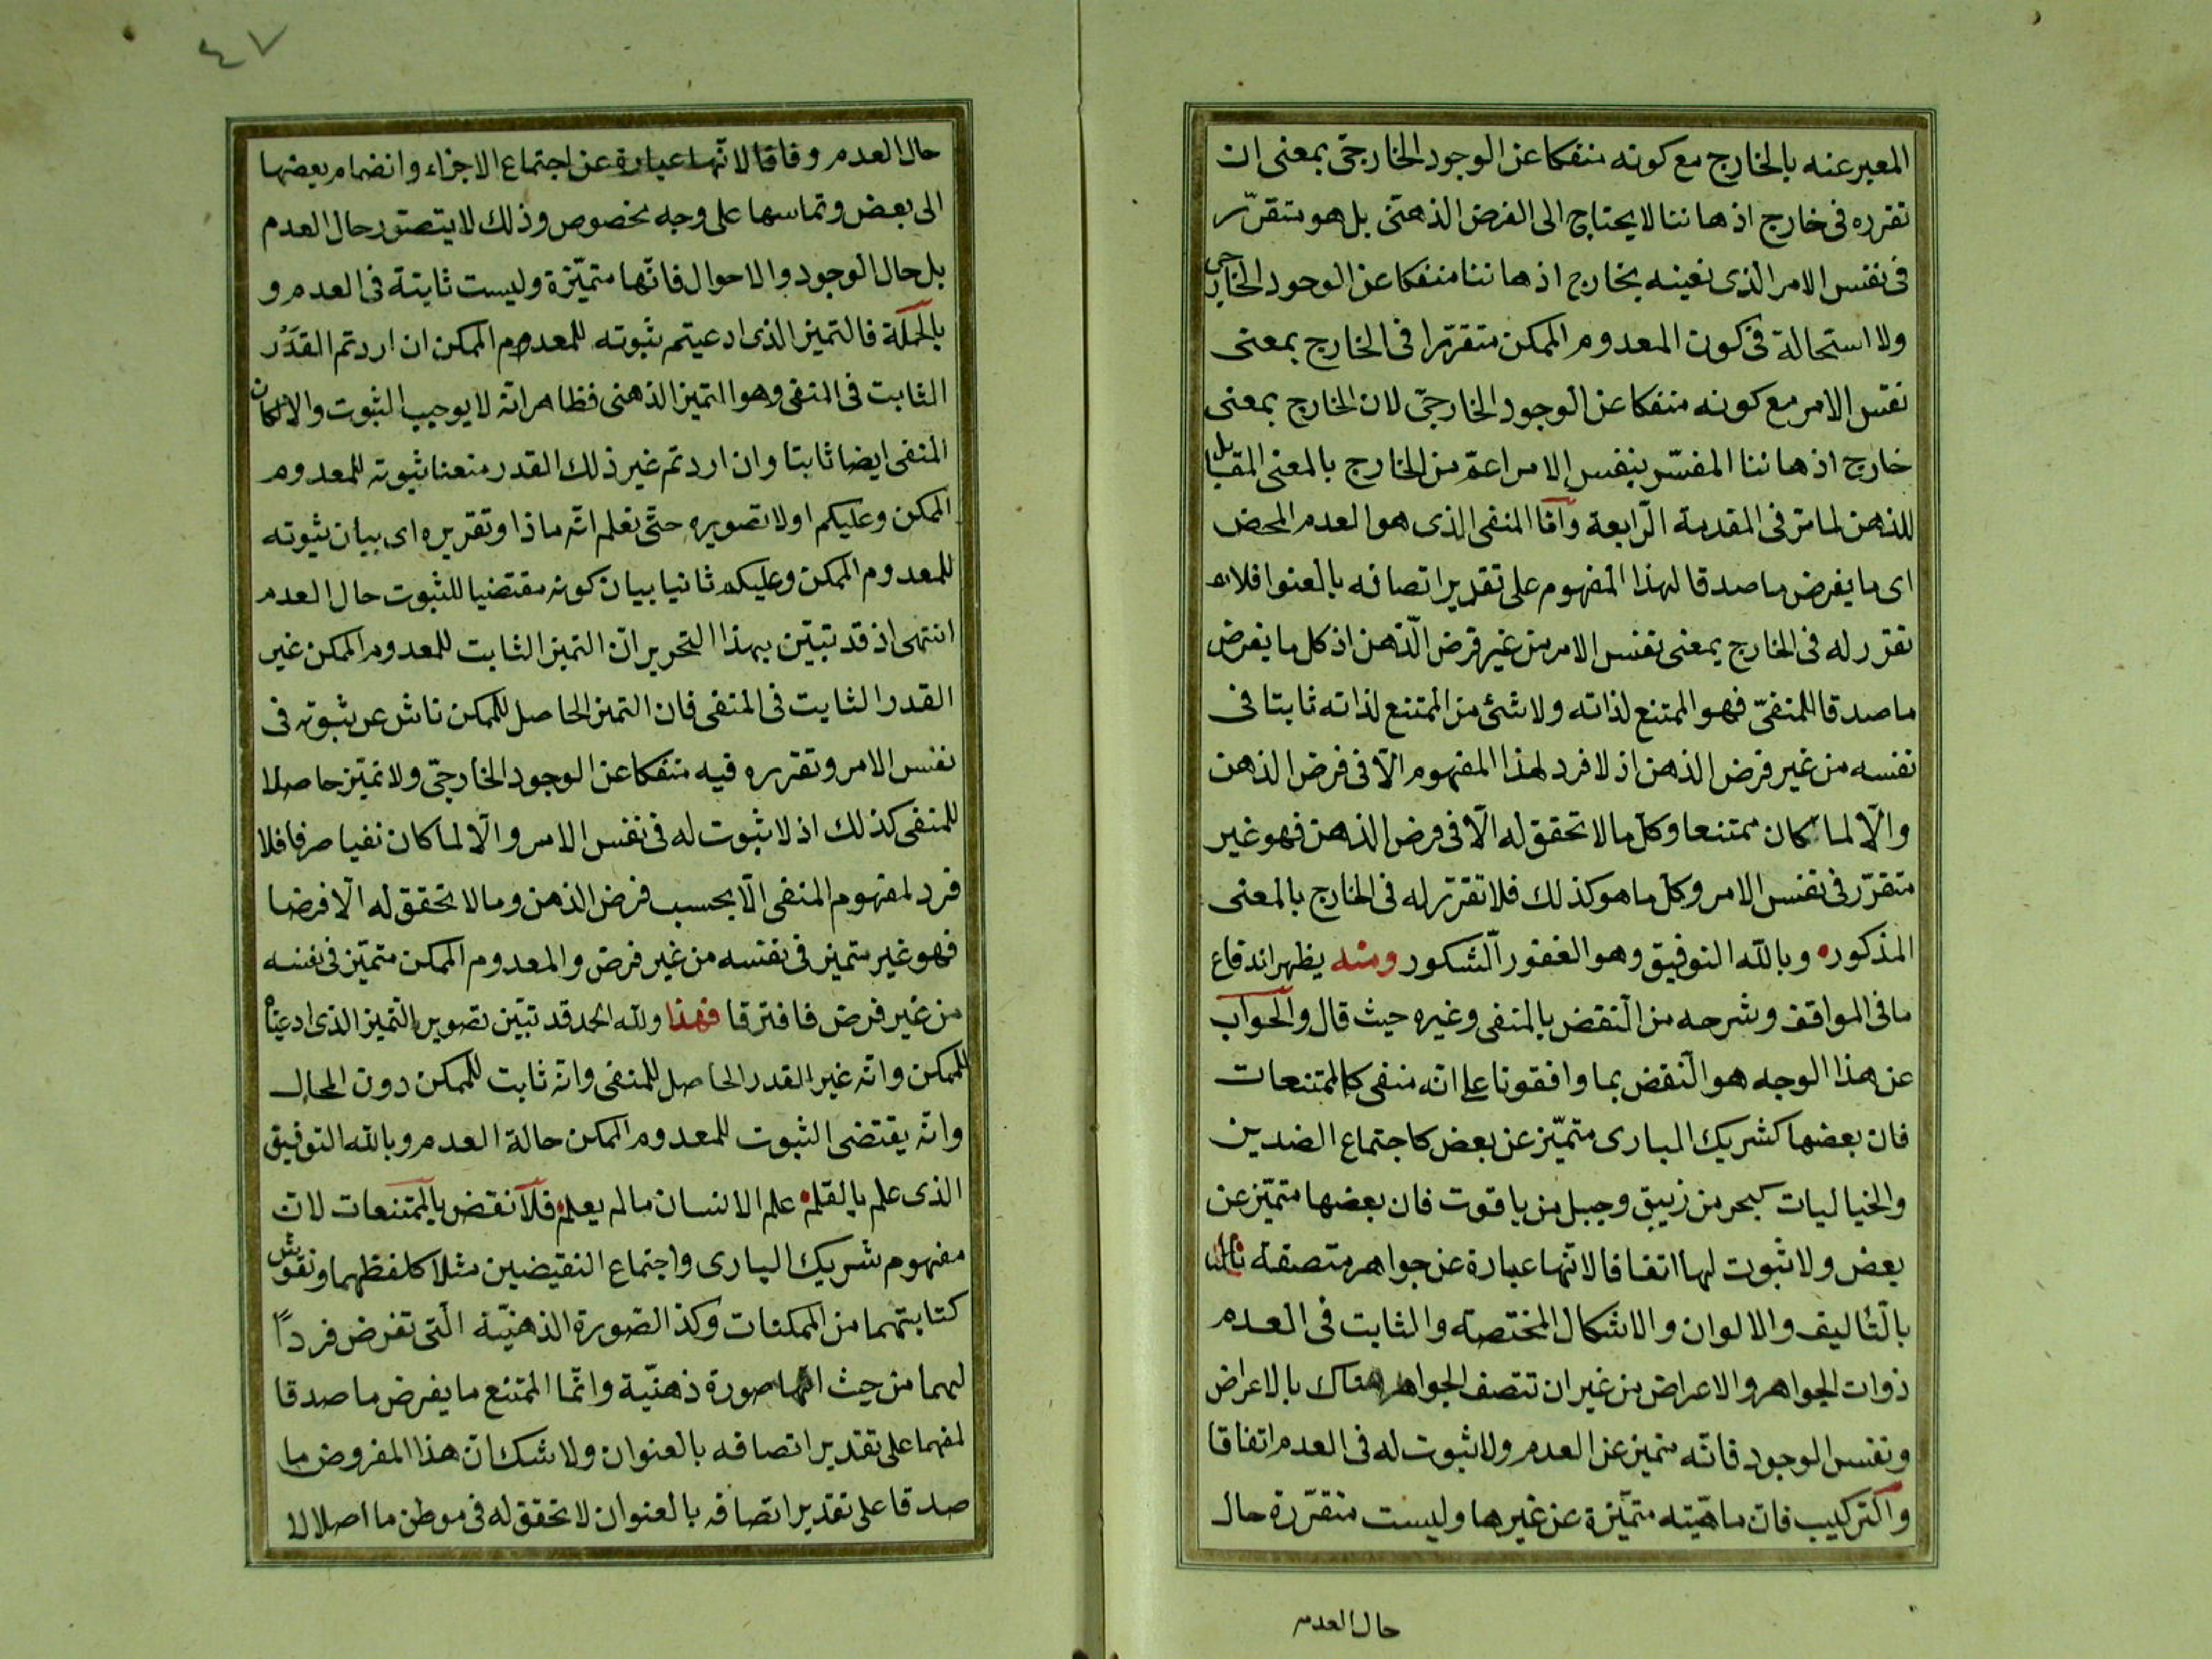 المعبر عنه بالخارج مع كونه منفكا عن الوجود الخارجىّ بمعنى ان
تقرره فى خارج اذهاننا لا يحتاج الى الفرض الذهنىّ بل هو متقرّر
فى نفس الامر الذى نعينه بخارج اذهاننا منفكا عن الوجود الخارجى
ولا استحالة فى كون المعدوم الممكن متقررا فى الخارج بمعنى
نفس الامر مع كونه منفكا عن الوجود الخارجىّ لان الخارج بمعنى
خارج اذهاننا المفسّر بنفس الامر اعمّ من الخارج بالمعنى المقابل
للذهن لما مرّ فى المقدمة الرّابعة وامّا المنفى الذى هو العدم المحض
اى ما يفرض ما صدقا لهذا المفهوم على تقدير اتصافه بالعنوا فلا
تقرر له فى الخارج بمعنى نفس الامر من غير فرض الذّهن اذ كل ما يفرض
ما صدقا للمنفىّ فهو الممتنع لذاته ولا شئ من الممتنع لذاته ثابتا فى
نفسه من غير فرض الذهن اذ لا فرد لهذا المفهوم الّا فى فرض الذهن
والّا لما كان ممتنعا وكل ما لا تحقق له الّا فى فرض الذهن فهو غير
متقرّر فى نفس الامر وكل ما هو كذلك فلا تقرّر له فى الخارج بالمعنى
المذكور وبالله التوفيق وهو الغفور الشّكور ومنه يظهر اندفاع
ما فى المواقف وشرحه من النّقض بالمنفى وغيره حيث قال والجواب
عن هذا الوجه هو النّقض بما وافقونا على انه منفى كالممتنعات
فان بعضها كشريك البارى متميّز عن بعض كاجتماع الضدين
والخياليات كبحر من زيبق وجبل من ياقوت فان بعضها متميّز عن
بعض ولا ثبوت لها اتفاقا لانّها عبارة عن جواهر متصفة
بالتّاليف والالوان والاشكال المختصة والثابت فى العدم
ذوات الجواهر والاعراض من غير ان تتصف الجواهر هناك بالاعراض
ونفس الوجود فانّه متميز عن العدم ولا ثبوت له فى العدم اتفاقا
والتركيب فان ماهيّته متميّزة عن غيرها وليست متقرّرة حال
حال العدم
٤٧
حال العدم وفاقا لانّها عبارة عن اجتماع الاجزاء وانضمام بعضها
الى بعض وتماسها على وجه مخصوص وذلك لا يتصوّر حال العدم
بل حال الوجود والاحوال فانّها متميّزة وليست ثابتة فى العدم و
بالجملة فالتميز الذى ادعيتم ثبوته للمعدوم الممكن ان اردتم القدر
الثابت فى المنفى وهو التميز الذهنى فظاهر انه لا يوجب الثبوت والا لكان
المنفى ايضا ثابتا وان اردتم غير ذلك القدر منعنا ثبوته للمعدوم
الممكن وعليكم اولا تصويره حتّى نعلم انّه ماذا وتقريره اى بيان ثبوته
للمعدوم الممكن وعليكم ثانيا بيان كونه مقتضيا للثبوت حال العدم
انتهى اذ قد تبيّن بهذا التحرير انّ التميز الثابت للمعدوم الممكن غير
القدر الثابت فى المنفى فان التميز الحاصل للممكن ناش عن ثبوته فى
نفس الامر وتقرره فيه منفكا عن الوجود الخارجىّ ولا تميّز حاصلا
للمنفى كذلك اذ لا ثبوت له فى نفس الامر والّا لما كان نفيا صرفا فلا
فرد لمفهوم المنفى الّا بحسب فرض الذهن وما لا تحقق له الّا فرضا
فهو غير متميز فى نفسه من غير فرض والمعدوم الممكن متميّز فى نفسه
من غير فرض فافترقا فهذا ولله الحمد قد تبيّن تصوير التميز الذى ادعيناه
للممكن وانه غير القدر الحاصل للمنفى وانه ثابت للممكن دون المحال
وانه يقتضى الثبوت للمعدوم الممكن حالة العدم وبالله التوفيق
الذى علم بالقلم علم الانسان ما لم يعلم فلا نقض بالممتنعات لانّ
مفهوم شريك البارى واجتماع النقيضين مثلا كلفظهما ونقوش
كتابتهما من الممكنات وكذا الصّورة الذهنيّة الّتى تفرض فردًا
لهما من حيث انها صورة ذهنيّة وانّما الممتنع ما يفرض ما صدقا
لمفهما على تقدير اتصافه بالعنوان ولا شك انّ هذا المفروض ما
صدقا على تقدير اتصافه بالعنوان لا تحقق له فى موطن ما اصلا لا